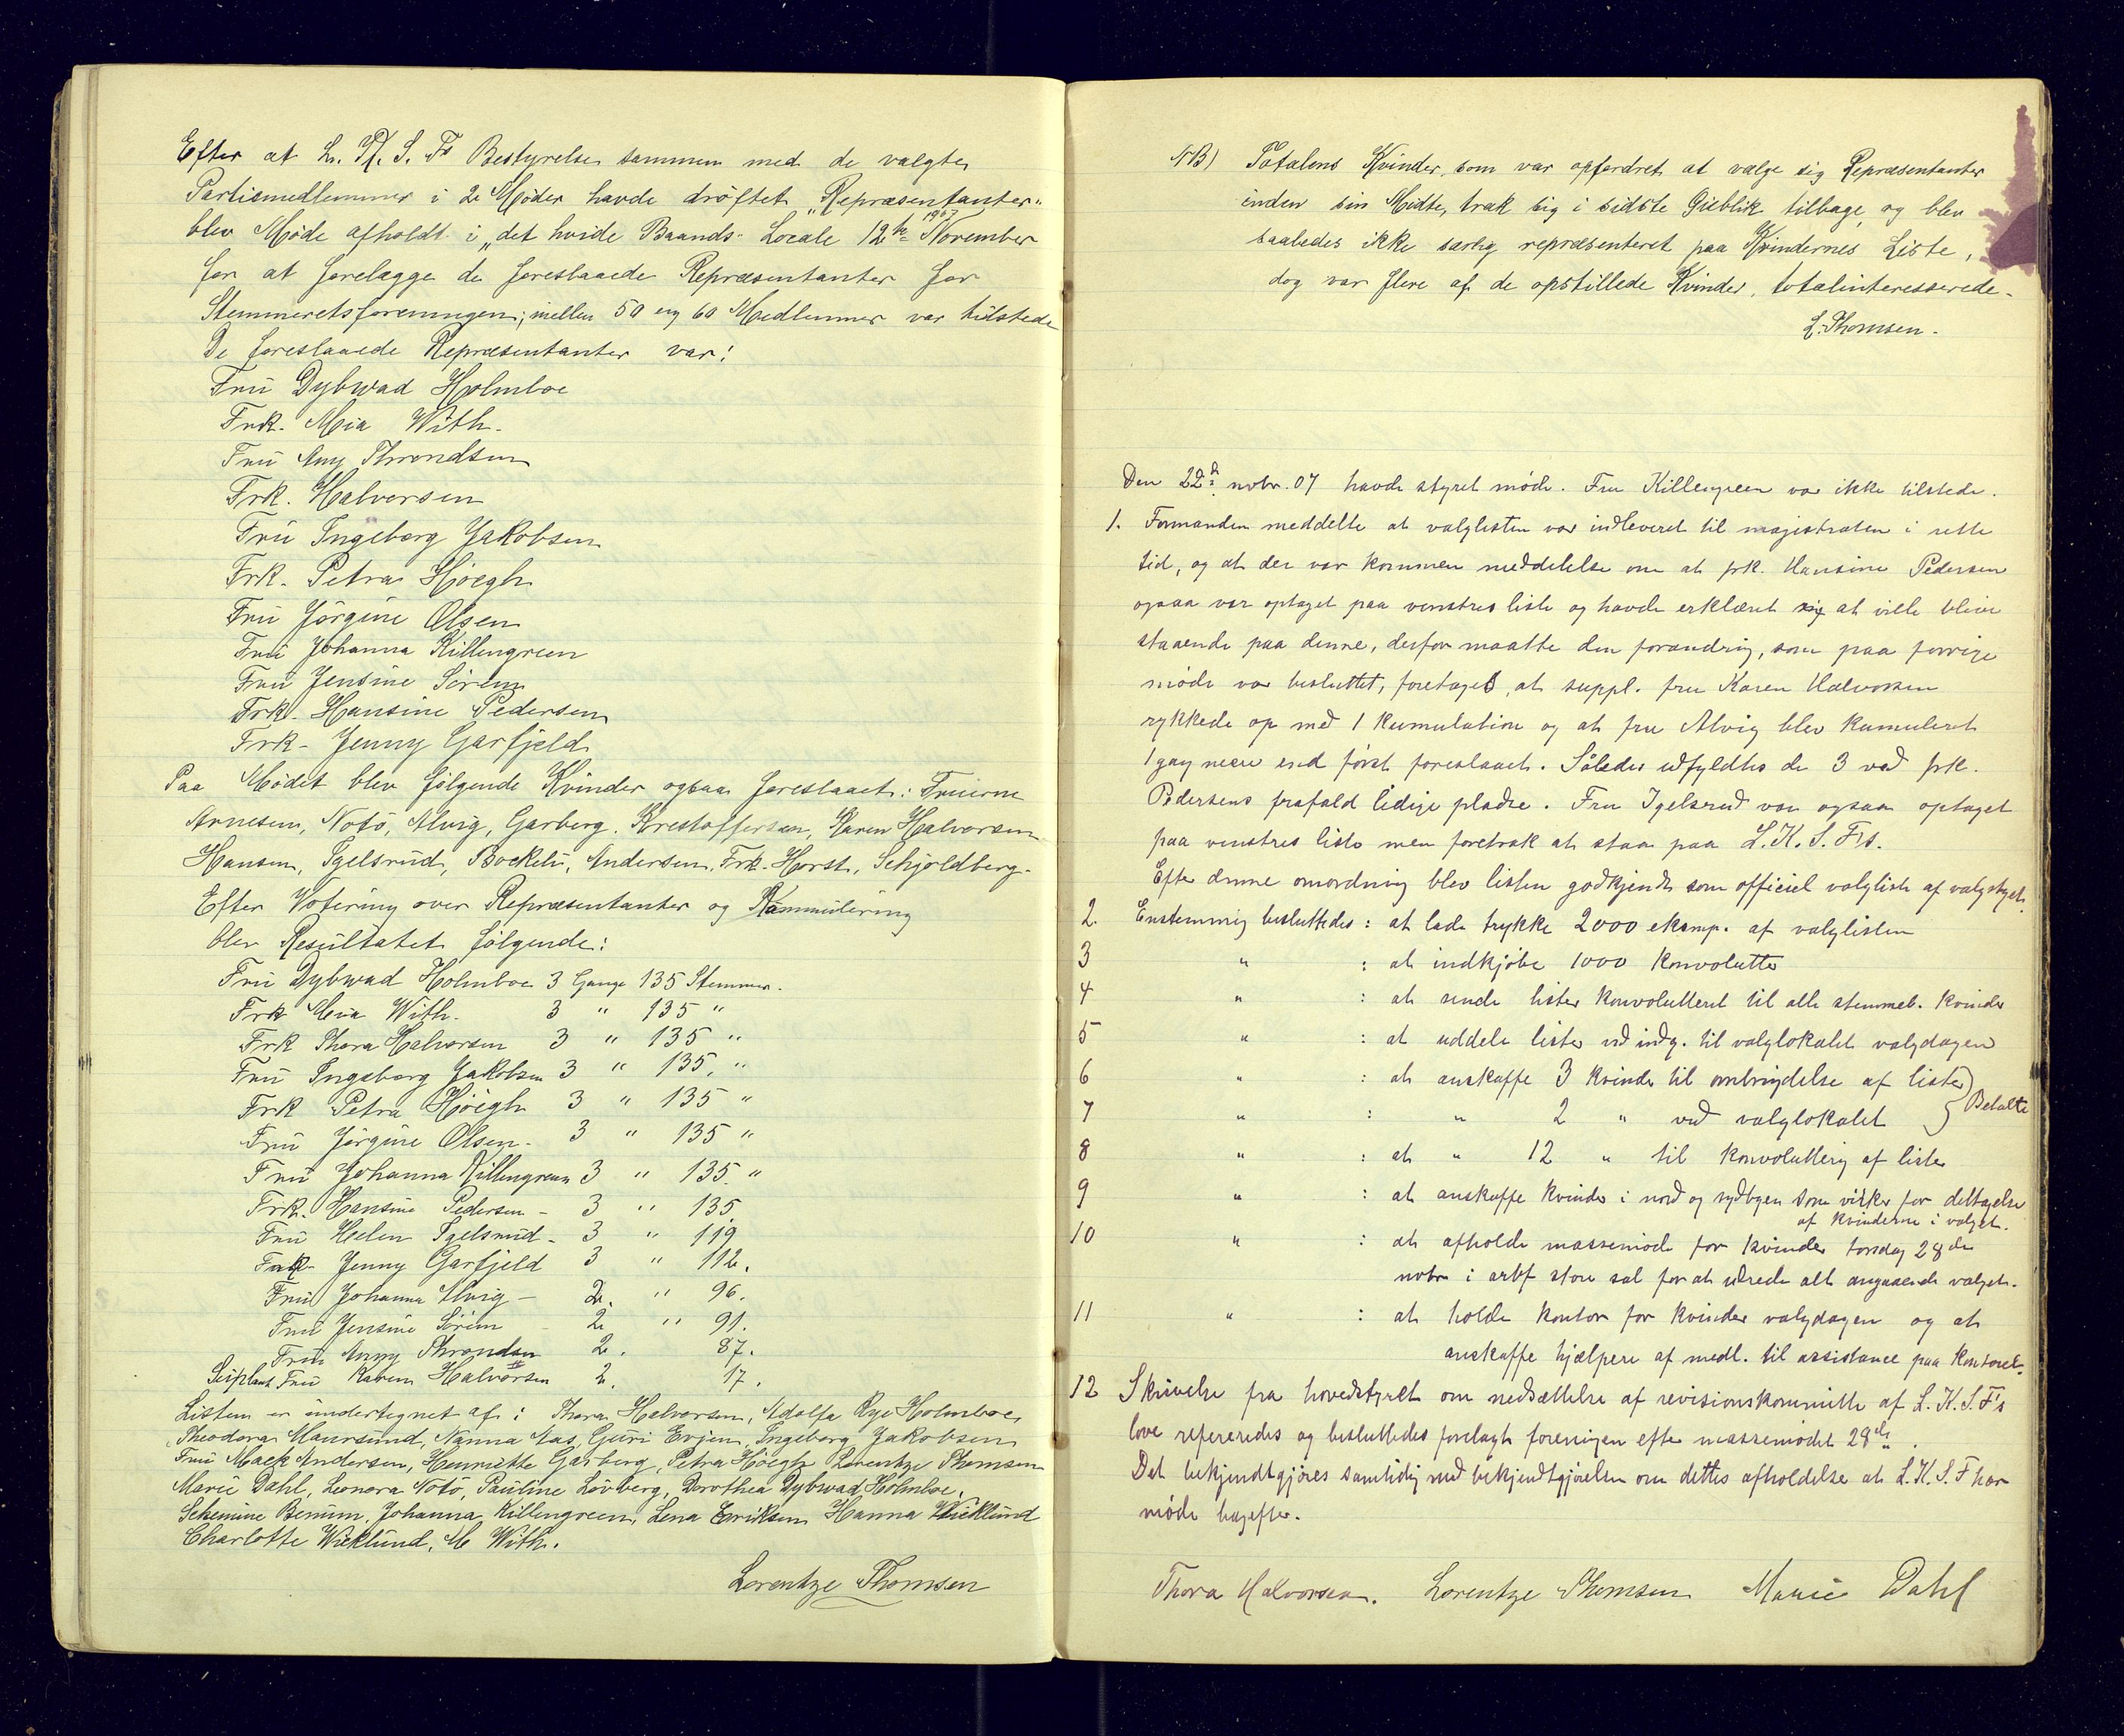 Efter at L. K. S. Fs Bestyrelse sammen med de valgte
Partiemedlemmer i 2 Møder havde drøftet „Repræsentanter"
blev Møde afholdt i „det hvide Baands" Locale 12te November 1907
for at forelægge de foreslaaede Repræsentanter for
Stemmeretsforeningen; mellem 50 og 60 Medlemmer var tilstede
De foreslaaede Repræsentanter var:
Fru Dybwad Holmboe
Frk. Mia With.
Fru Any Throndsen
Frk. Halvorsen
Fru Ingeborg Jakobsen
Frk. Petra Hjöegh
Fru Jörgine Olsen
Fru Johanna Killengreen
Fru Jensine Sörem
Frk. Hansine Pedersen
Frk- Jenny Garfjeld
Paa Mödet blev fölgende Kvinder ogsaa foreslaaet: Fruerne
Arnesen, Notö, Alvig, Garberg, Krestoffersen, Karen Halvorsen
Hansen, Igelsrud, Bockelu, Andersen, Frk. Horst, Schjoldberg.
Efter Votering over Repræsentanter og Kammulering
blev Resultatet fölgende:
Fru Dybwad Holmboe 3 Gange 135 Stemmer.
Frk Mia With. 3 " 135 "
Frk Thora Halvorsen 3 " 135 "
Fru Ingeborg Jakobsen 3 " 135. "
Frk Petra Hjöegh 3 " 135 "
Fru Jörgine Olsen. 3 " 135 "
Fru Johanna Killengreen 3 " 135. "
Frk. Hansine Pedersen - 3 " 135
Fru Helen Igelsrud - 3 " 119
Frk- Jenny Garfjeld 3 " 112.
Fru Johanna Alvig - 2. " 96.
Fru Jensine Sörem - 2 " 91.
Fru Anny Throndsen 2. 87.
Supleant Fru Karen Halvorsen 2. 17.
Listen er undertegnet af: Thora Halvorsen, Adolfa Rye Holmboe,
Theodora Maursund, Nanna Aas, Guri Evjen, Ingeborg Jakobsen
Fru Mack Andersen, Henriette Garberg, Petra Höegh Lorentze Thomsen
Marie Dahl, Leonora Notö, Pauline Lövberg, Dorothea Dybwad Holmboe,
Benum, Johanna Killengreen, Lena Eriksen Hanna Wicklund
Charlotte Wicklund, M With.
Lorentze Thomsen
NB) Totalens Kvinder, som var opfordret at vælge sig Repræsentanter
inden sin Midte, trak sig i sidste Øieblik tilbage, og blev
saaledes ikke særlig repræsenteret paa Kvindernes Liste,
dog var flere af de opstillede Kvinder, totalinteresserede.
L. Thomsen.
Den 22d novbr. 07 havde styret møde. Fru Killengreen var ikke tilstede.
1. Formanden meddelte at valglisten var indleveret til magistraten i rette
tid, og at der var kommen meddelelse om at frk. Hansine Pedersen
ogsaa var optaget paa venstres liste og havde erklæret sig at ville blive
staaende paa denne, derfor maatte den forandring, som paa forrige
møde var besluttet, foretages, at suppl. fru Karen Halvorsen
rykkede op med 1 kumulation og at fru Alvig blev kumuleret
1 gang mere end først foreslaaet. Således udfyldtes de 3 ved frk.
Pedersens frafald ledige pladse. Fru Igelsrud var ogsaa optaget
paa venstres liste men foretrak at staa paa L.K.S.Fs.
Efter denne omordning blev listen godkjendt som officiel valgliste af valgstyret.
2. Enstemmig besluttedes: at lade trykke 2000 eksemp. af valglisten
3 " : at indkjøbe 1000 konvolutter
4 " : at sende lister konvolutteret til alle stemmeb. kvinder
5 " : at uddele lister ved indg. til valglokalet valgdagen
6 " : at anskaffe 3 kvinder til ombringelse af lister } Betalte
7 " : " 2 " ved valglokalet
8 " : at " 12 " til konvoluttering af lister
9 " : at anskaffe kvinder i nord og sydbyen som virker for deltagelse
af kvinderne i valget.
10 " : at afholde massemøde for kvinder torsdag 28de
novbr i arbf store sal for at utrede alt angaaende valget.
11 " : at holde kontor for kvinder valgdagen og at
anskaffe hjælpere af medl. til assistance paa kontoret.
12 Skrivelse fra hovedstyret om nedsættelse af revisionskommitte af L.K.S.F's
love refereredes og besluttedes forelagt foreningen efter massemødet 28de.
Det bekjendtgjøres samtidig med bekjendtgjørelsen om dettes afholdelse at L.K.S.F har
møde bagefter.
Thora Halvorsen. Lorentze Thomsen Marie Dahl